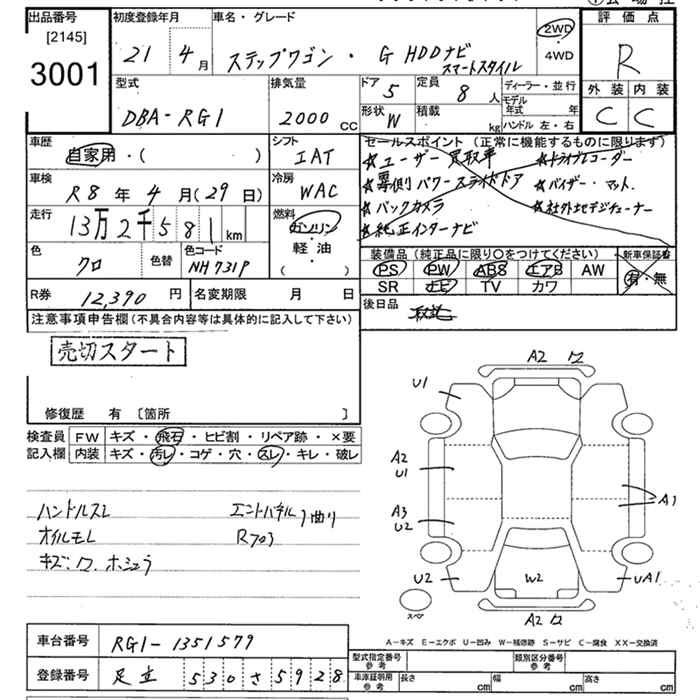 出品番号 初度登録年月 車名・グレード 2WD 評価点
[2145]
3001 21 年 4月 ステップワゴン・G HDDナビ スマートスタイル 4WD R
型式 排気量 ドア 5 定員 8人 ディーラー・並行 外装 内装
DBA-RG1 2000cc 形状 W 積載 kg モデル年式 年 C C
ハンドル 左・右
車歴 シフト セールスポイント(正常に機能するものに限ります)
自家用・( ) IAT ☆ユーザー買取車 ☆ドライブレコーダー
車検 冷房 ☆両側パワースライドドア ☆バイザー・マット
R8年4月(29日) WAC ☆バックカメラ ☆社外地デジチューナー
走行 燃料 ☆純正インターナビ
13万2千581km ガソリン・軽油( )
色 色替 色コード 装備品(純正品に限り〇をつけてください) 新車保証書
クロ NH731P PS PW ABS エアB AW 有・無
SR ナビ TV カワ
R券 12,390円 名変期限 月 日 後日品 取説
注意事項申告欄(不具合内容等は具体的に記入して下さい)
売切スタート
修復歴 有 [箇所 ]
検査員 FW キズ・飛石・ヒビ割・リペア跡・×要
記入欄 内装 キズ・汚レ・コゲ・穴・スレ・キレ・破レ
ハンドルスレ エンドパネル 曲り
オイルモレ R703
A2
U1
A2
U1
A3
U2
A1
U2 W2 UA1
スペア A2
A-キズ E-エクボ U-凹み W-補修跡 S-サビ C-腐食 XX-交換済
車台番号 RG1-1351579 型式指定番号 参考 類別区分番号 参考
登録番号 足立 530 さ 5928 車庫証明用 参考 長さ cm 幅 cm 高さ cm